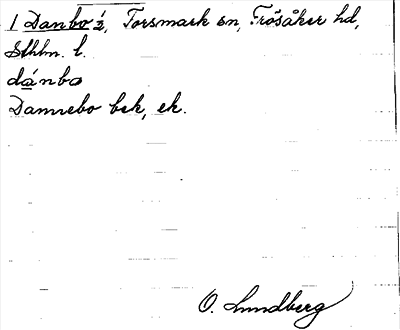 1 Danbo ½, Torsmark sn, Frösåker hd,
Sthlm. l.
dánbo
Dannebo bek, ek.
O. Lundberg